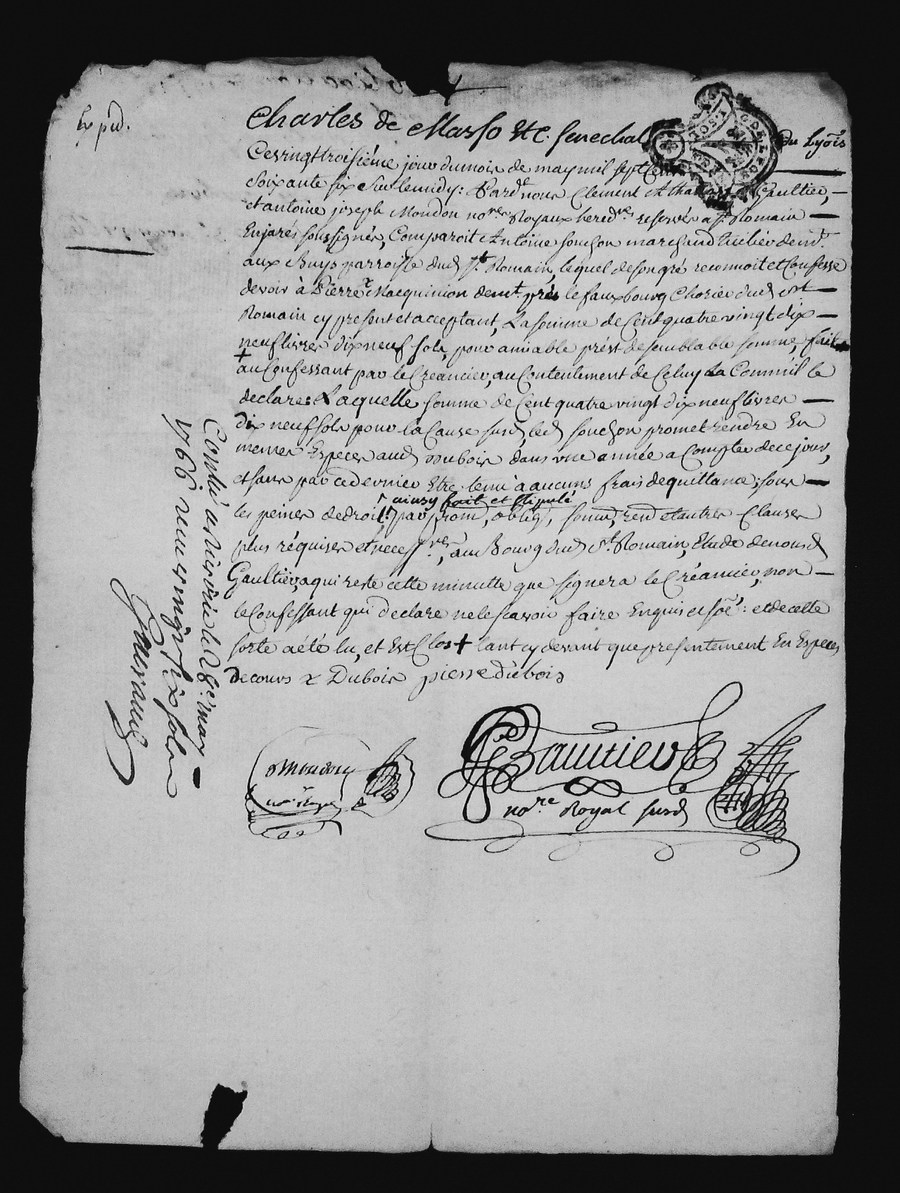 Exped.
Charles de Masso &c. Senechal du Lyöis
Cevingttroisiéme jour dumois de may mil sept Cent
Soixante six surlemidy : Pard.t nous Clement Athanaze Gaultier, —
et antoine joseph Mondon no.res Royaux hered.res reservés a S.t Romain —
Enjares soussignés, Comparoit Antoine souchon marchand
aux Buys parroisse dud. S.t Romain, lequel desongré reconnoit et Confesse
devoir à Pierre Macquinion dem.t prés le fauxbourg Chorier dud. St —
Romain cy present et acceptant, La somme de Cent quatre vingt dix —
neuf livres dix neuf sols, pour amiable prést de semblable somme, fait
+
au Confessant par le Creancier, au Contentement de Celuy La Comm'il le
declare : Laquelle somme de Cent quatre vingt dix neuf livres —
dix neuf sols pour la Cause susd. led. souchon promet rendre En
memes Especes aud. Dubois dans une année a Compter de ce jour,
et sans par ce dernier Etre tenu à aucuns frais de quittance ; sous —
ainsy fait et stipulé
les peines de droit, par prom, oblig, soum, ren et autres Clauses
plus réquises et necess.res, au Bourg dud. S.t Romain, Etude denousd.
Gaultier, aqui reste cette minutte que signera le Créancier, non —
le Confessant qui declare ne le scavoir faire Enquis et söe : et de cette
sorte a été lu, et Est Clos + tant cy devant que presentement En Especes
De cours & Dubois pierre diebois
Mondon
no.re Royal
Gaultier
no.re Royal susd.
Conlé a le 28e. may
1766 recu vingt six sols